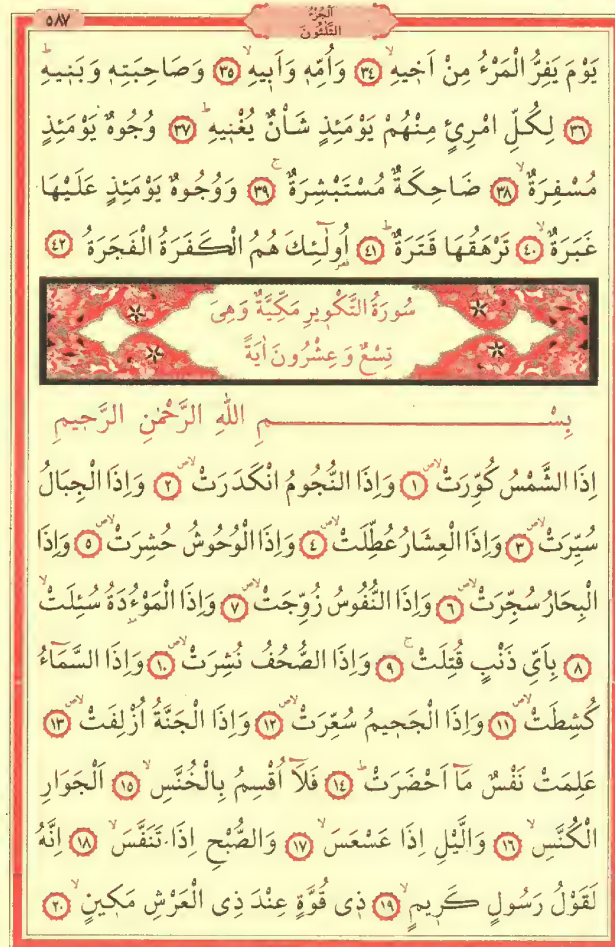 ٥٨٧
اَلْجُزْءُ
الثَّلٰثُونَ
يَوْمَ يَفِرُّ الْمَرْءُ مِنْ اَخ۪يهِۙ ﴿٣٤﴾ وَاُمِّه۪ وَاَب۪يهِۙ ﴿٣٥﴾ وَصَاحِبَتِه۪ وَبَن۪يهِۜ
﴿٣٦﴾ لِكُلِّ امْرِئٍ مِنْهُمْ يَوْمَئِذٍ شَأْنٌ يُغْن۪يهِۜ ﴿٣٧﴾ وُجُوهٌ يَوْمَئِذٍ
مُسْفِرَةٌۙ ﴿٣٨﴾ ضَاحِكَةٌ مُسْتَبْشِرَةٌۚ ﴿٣٩﴾ وَوُجُوهٌ يَوْمَئِذٍ عَلَيْهَا
غَبَرَةٌۙ ﴿٤٠﴾ تَرْهَقُهَا قَتَرَةٌۜ ﴿٤١﴾ اُولٰٓئِكَ هُمُ الْكَفَرَةُ الْفَجَرَةُ ﴿٤٢﴾
سُورَةُ التَّكْو۪يرِ مَكِّيَّةٌ وَهِىَ
تِسْعٌ وَعِشْرُونَ اٰيَةً
بِسْمِ اللّٰهِ الرَّحْمٰنِ الرَّح۪يمِ
اِذَا الشَّمْسُ كُوِّرَتْۙۖ ﴿١﴾ وَاِذَا النُّجُومُ انْكَدَرَتْۙۖ ﴿٢﴾ وَاِذَا الْجِبَالُ
سُيِّرَتْۙۖ ﴿٣﴾ وَاِذَا الْعِشَارُ عُطِّلَتْۙۖ ﴿٤﴾ وَاِذَا الْوُحُوشُ حُشِرَتْۙۖ ﴿٥﴾ وَاِذَا
الْبِحَارُ سُجِّرَتْۙۖ ﴿٦﴾ وَاِذَا النُّفُوسُ زُوِّجَتْۙۖ ﴿٧﴾ وَاِذَا الْمَوْءُ۫دَةُ سُئِلَتْۙ
﴿٨﴾ بِاَيِّ ذَنْبٍ قُتِلَتْۚ ﴿٩﴾ وَاِذَا الصُّحُفُ نُشِرَتْۙۖ ﴿١٠﴾ وَاِذَا السَّمَٓاءُ
كُشِطَتْۙۖ ﴿١١﴾ وَاِذَا الْجَح۪يمُ سُعِّرَتْۙۖ ﴿١٢﴾ وَاِذَا الْجَنَّةُ اُزْلِفَتْۙۖ ﴿١٣﴾
عَلِمَتْ نَفْسٌ مَٓا اَحْضَرَتْۜ ﴿١٤﴾ فَلَٓا اُقْسِمُ بِالْخُنَّسِۙ ﴿١٥﴾ اَلْجَوَارِ
الْكُنَّسِۙ ﴿١٦﴾ وَالَّيْلِ اِذَا عَسْعَسَۙ ﴿١٧﴾ وَالصُّبْحِ اِذَا تَنَفَّسَۙ ﴿١٨﴾ اِنَّهُ
لَقَوْلُ رَسُولٍ كَر۪يمٍۙ ﴿١٩﴾ ذ۪ى قُوَّةٍ عِنْدَ ذِى الْعَرْشِ مَك۪ينٍۙ ﴿٢٠﴾